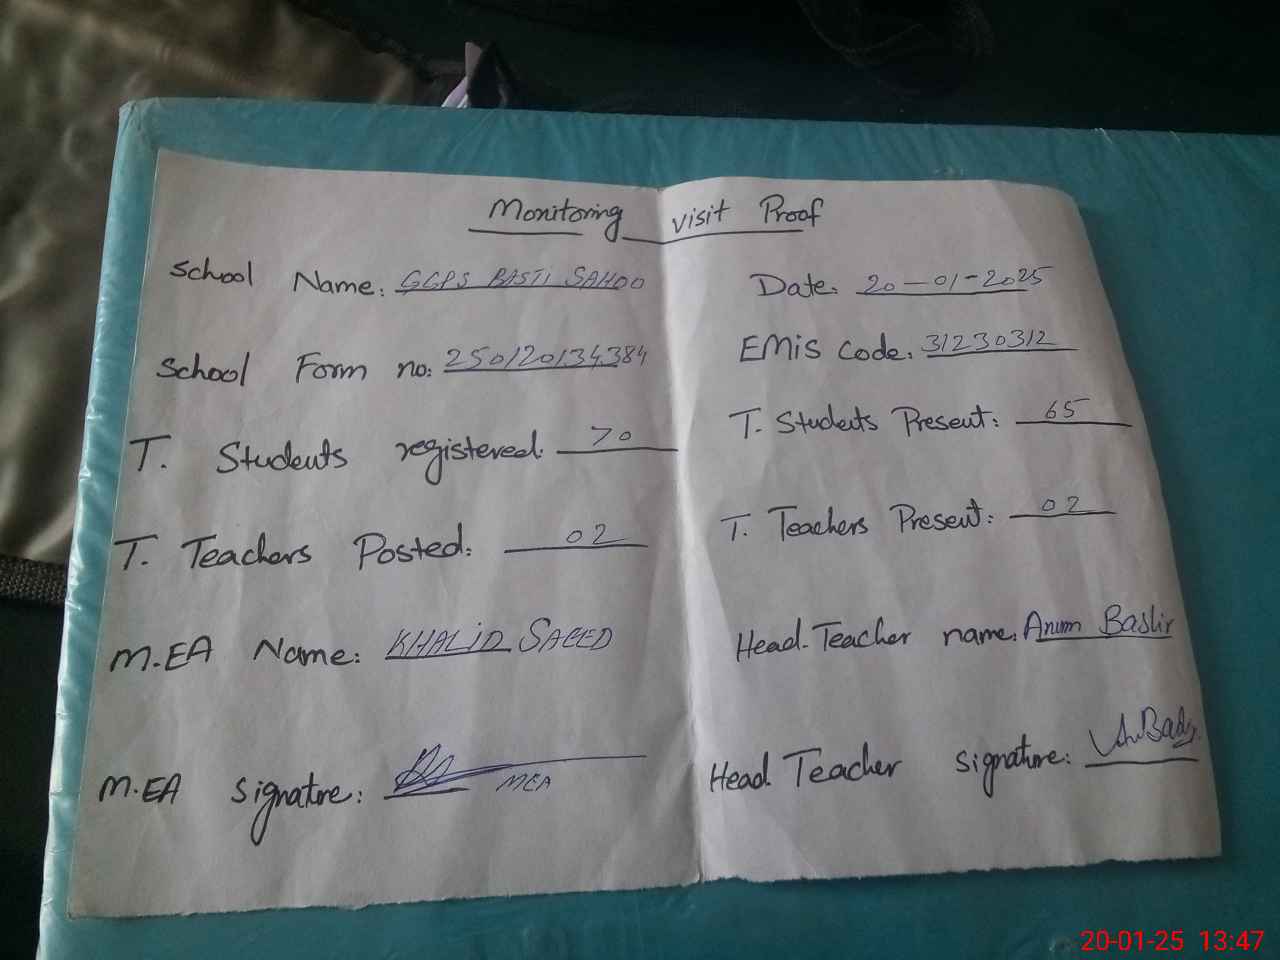 Monitoring visit Proof
School Name: GGPS BASTI SAHOO
Date: 20-01-2025
School Form no: 250120134384
EMiS Code: 31230312
T. Students registered: 70
T. Students Present: 65
T. Teachers Posted: 02
T. Teachers Present: 02
M.EA Name: KHALID SAEED
Head-Teacher name: Anum Bashir
M.EA signature: MEA
Head Teacher signature:
20-01-25 13:47